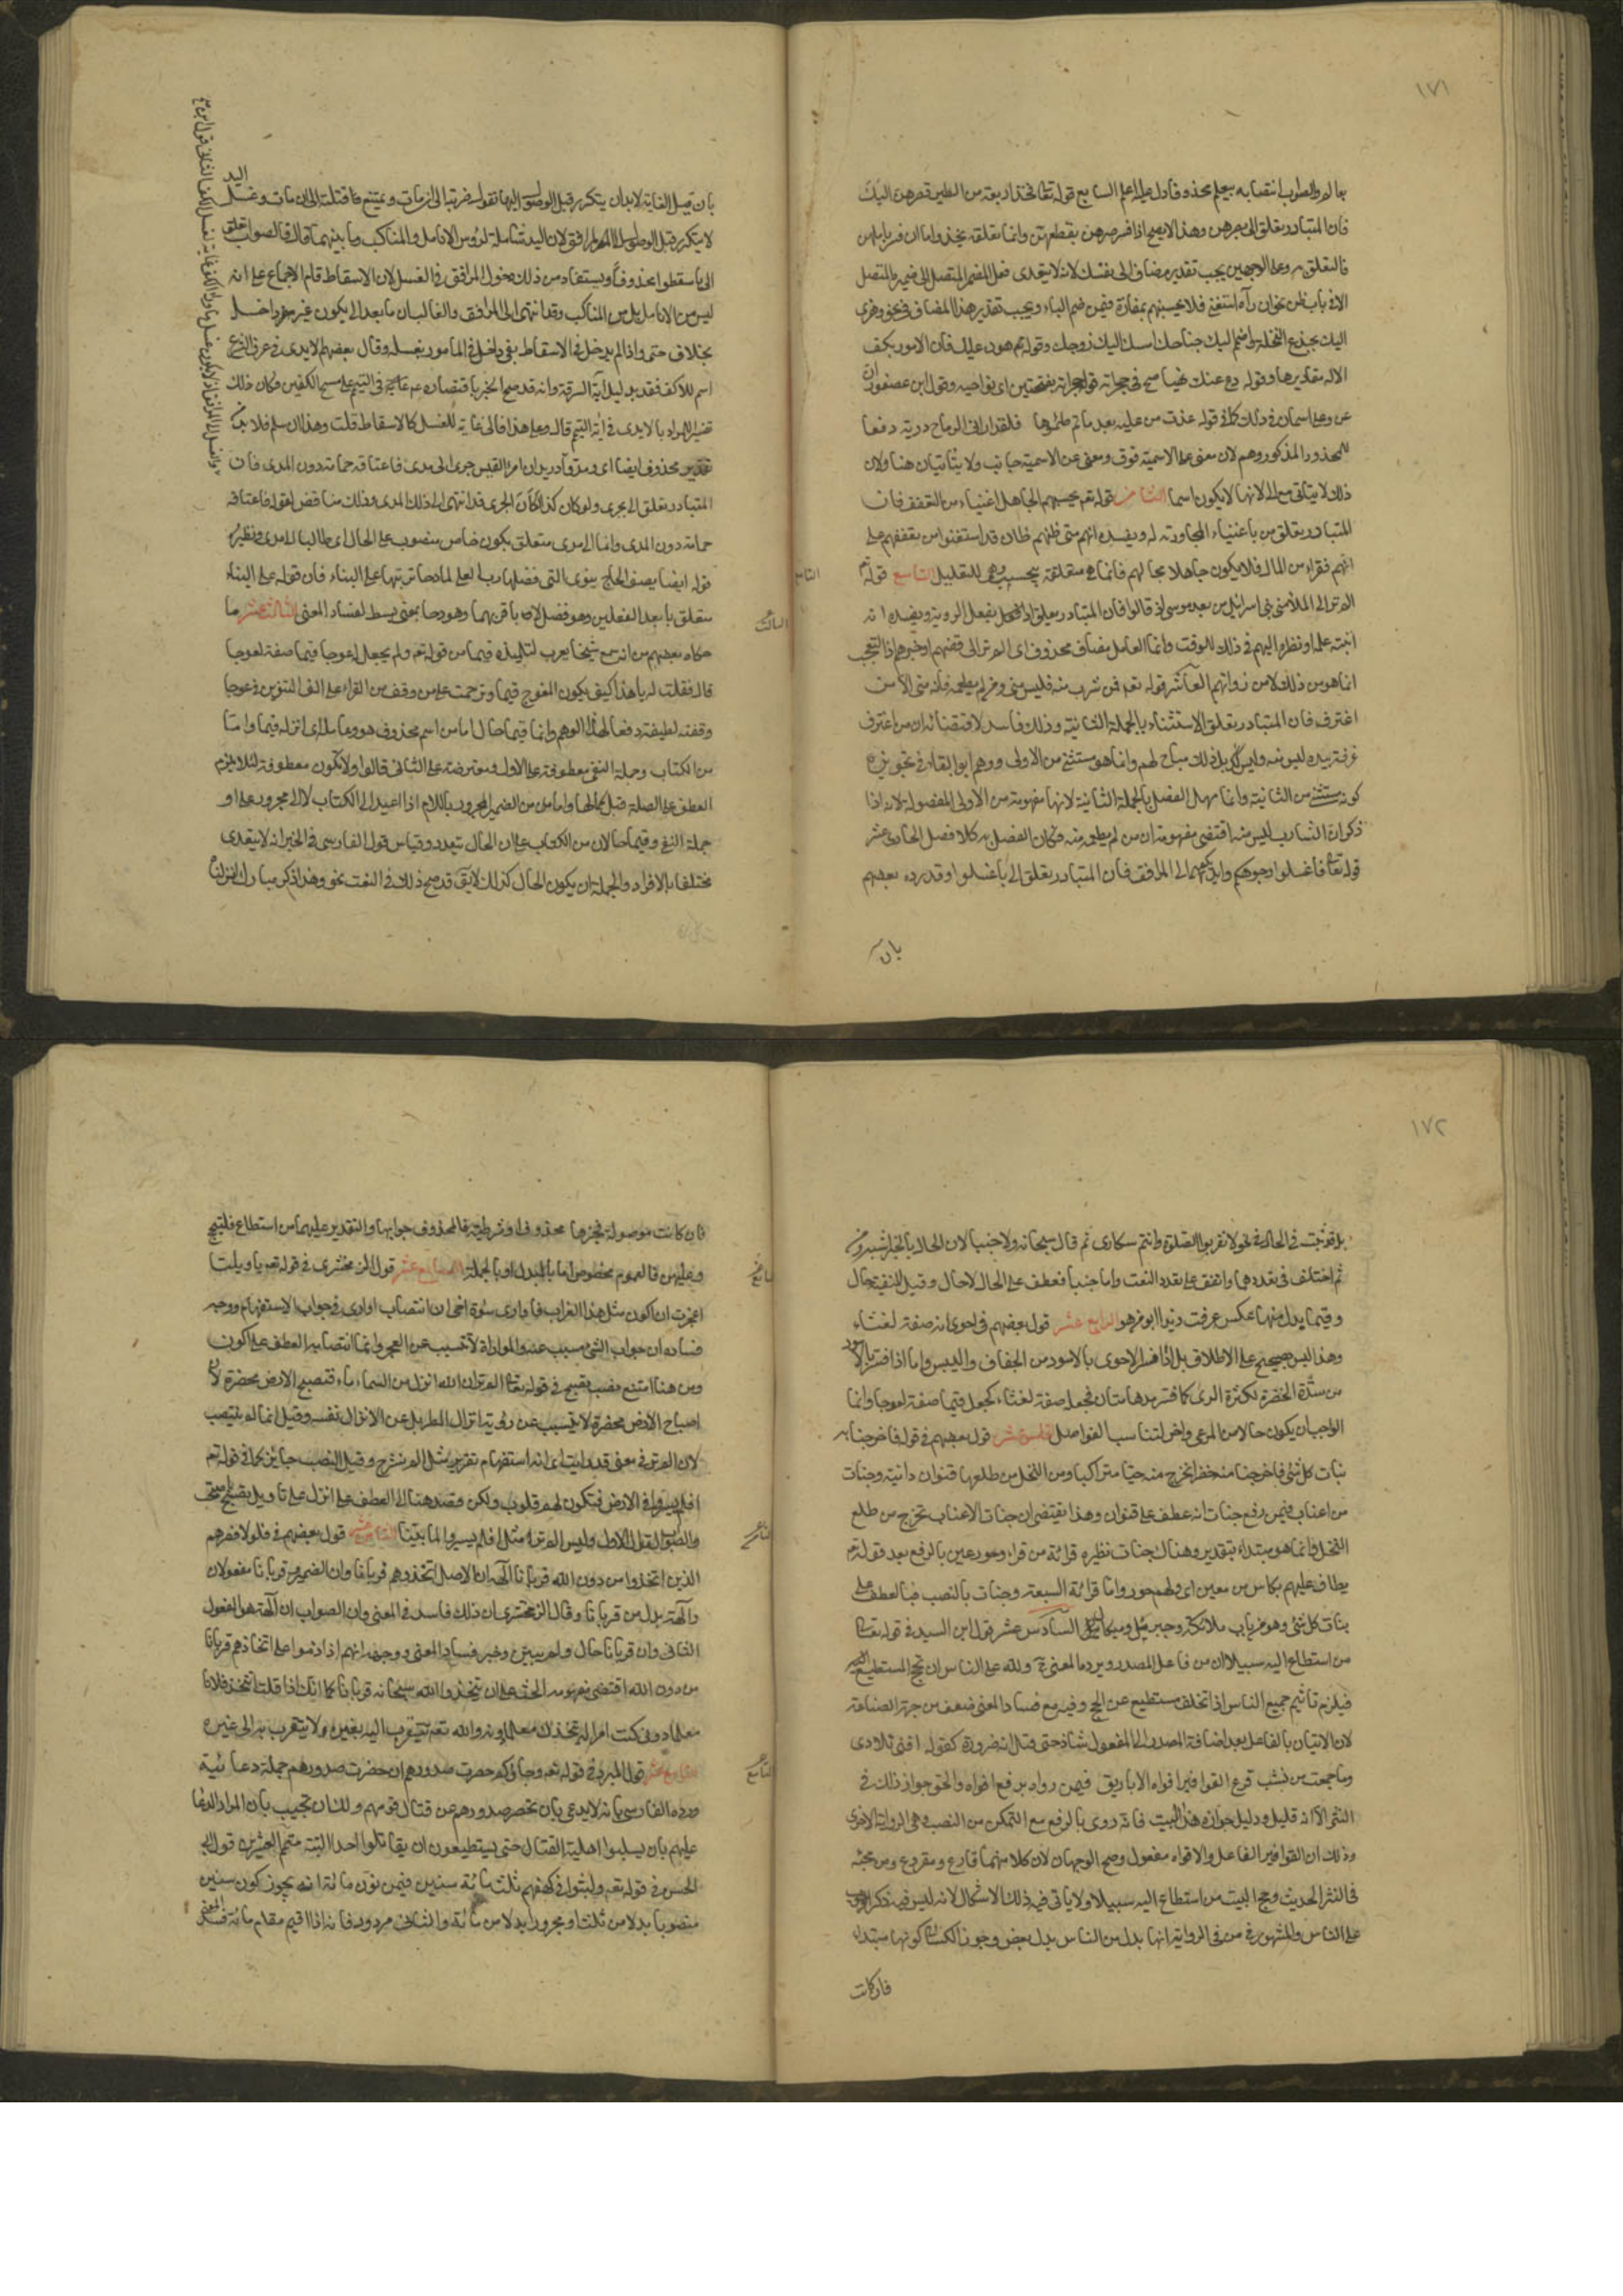 ١٧١
بعالم والصواب انتصابه بيعلم محذوفا دل عليه اعلم السابع قوله تعالى فخذ اربعة من الطير فصرهن اليك
فان المتبادر تعلق الى بصرهن وهذا لا يصح اذا فسر صرهن بقطعهن وانما تعلقه بخذ واما ان فسر باملهن
فالتعلق به وعلى الوجهين يجب تقدير مضاف الى نفسك لانه لا يتعدى فعل المضمر المتصل الى ضميره المتصل
الا في باب ظن نحو ان رآه استغنى فلا يحسبنهم بمفازة فيمن ضم الباء ويجب تقدير هذا المضاف في نحو وهزى
اليك بجذع النخلة واضمم اليك جناحك امسك عليك زوجك وقوله هون عليك فان الامور بكف
الاله مقاديرها وقوله دع عنك نهبا صيح في حجراته قوله حجراته بفتحتين اى نواحيه وقول ابن عصفور ان
عن وعلى اسمان في ذلك كما في قوله غدت من عليه بعد ما تم ظمؤها فلقد ارانى للرماح درية دفعا
للمحذور المذكور وهم لان معنى على الاسمية فوق ومعنى عن الاسمية جانب ولا يتأتيان هنا ولان
ذلك لا يتاتى مع الى لانها لا يكون اسما الثامن قوله تعم يحسبهم الجاهل اغنياء من التعفف فان
المتبادر تعلق من باغنياء لمجاورته له ويفسده انهم متى ظنهم ظان قد استغنوا من تعففهم علم
انهم فقراء من المال فلا يكون جاهلا بحالهم فانما هي متعلقة بيحسب وهي للتعليل التاسع قوله تعم
الم تر الى الملأ من بنى اسرائيل من بعد موسى اذ قالوا فان المتبادر تعلق اذ بفعل الرؤية ويفسده انه
لم ينته علمه او نظره اليهم في ذلك الوقت وانما العامل مضاف محذوف اى الم تر الى قصتهم او خبرهم اذ التعجب
انما هو من ذلك لا من ذواتهم العاشر قوله تعم فمن شرب منه فليس منى ومن لم يطعمه فانه منى الا من
اغترف فان المتبادر تعلق الاستثناء بالجملة الثانية وذلك فاسد لاقتضائه ان من اغترف
غرفة بيده ليس منه وليس كذلك بل ذلك مباح لهم وانما هو مستثنى من الاولى ووهم ابو البقاء في تجويزه
كونه مستثنى من الثانية وانما سهل الفصل بالجملة الثانية لانها مفهومة من الاولى المفصولة لانه اذا
ذكر ان الشارب ليس منه اقتضى مفهومه ان من لم يطعمه منه فكان الفصل به كلا فصل الحادى عشر
قوله تعالى فاغسلوا وجوهكم وايديكم الى المرافق فان المتبادر تعلق الى باغسلوا وقد رده بعضهم
بان
التاسع
بان قبل الغاية لابد ان يتكرر قبل الوصول اليها تقول ضربته الى ان مات ويمتنع قتلته الى ان مات وغسل اليد
لا يتكرر قبل الوصول الى المرافق لان اليد شاملة لرؤس الانامل والمناكب وما بينهما قال فالصواب تعلق
الى باسقطوا محذوفا ويستفاد من ذلك دخول المرافق في الغسل لان الاسقاط قام الاجماع على انه
ليس من الانامل بل من المناكب وقد انتهى الى المرافق والغالب ان ما بعد الى يكون غير داخل
بخلاف حتى واذا لم يدخل في الاسقاط بقى داخل في المامور بغسله وقال بعضهم الايدى في عرف الشرع
اسم للاكف فقط بدليل آية السرقة وانه قد صح الخبر باقتصاره عم في التيمم على مسح الكفين فكان ذلك
تفسيرا للمراد بالايدى في آية التيمم قال وعلى هذا فالى غاية للغسل لا للاسقاط قلت وهذا ان سلم فلا بد من
تقدير محذوف ايضا اى ومدوا دريد ان امرأ القيس جرى الى مدى فاعتاقه حمامه دون المدى فان
المتبادر تعلق الى بجرى ولو كان كذلك لكان الجرى قد انتهى الى ذلك المدى وذلك مناقض لقوله فاعتاقه
حمامه دون المدى وانما الى مدى متعلق بكون خاص منصوب على الحال اى طالبا الى مدى ونظيره
قوله ايضا يصف الحاج ينوى التى فضلها رب العلى لما دحا تربتها على البناء فان قوله على البناء
متعلق بابعد الفعلين وهو فضل لا باقربهما وهو دحا بمعنى بسط لفساد المعنى الثالث عشر ما
حكاه بعضهم من انه سمع شيخا يعرب لتلميذه قيما من قوله تعم ولم يجعل له عوجا قيما صفة لعوجا
قال فقلت له يا هذا كيف يكون العوج قيما وترحمت على من وقف من القراء على الف التنوين في عوجا
وقفة لطيفة دفعا لهذا الوهم وانما قيما حال اما من اسم محذوف هو وعامله اى انزله قيما واما
من الكتاب وجملة النفى معطوفة على الاول ومعترضة على الثانى قالوا ولا تكون معطوفة لئلا يلزم
العطف على الصلة قبل كمالها واما من الضمير المجرور باللام اذا اعيد الى الكتاب لا الى مجرور على او
جملة النفى وقيما حالان من الكتاب على ان الحال تتعدد وقياس قول الفارسى في الخبر انه لا يتعدى
مختلفا بالافراد والجملة ان يكون الحال كذلك لا يق قد صح ذلك في النعت نحو وهذا ذكر مبارك انزلناه
الثالث عشر
١٧٢
بل قد ثبت في الحال في نحو لا تقربوا الصلوة وانتم سكارى ثم قال سبحانه ولا جنبا لان الحال بالخبر اشبه ومن
ثم اختلف في تعددهما واتفق على تعدد النعت واما جنبا فعطف على الحال لا حال وقيل المنفية حال
وقيما بدل منها عكس عرفت زيدا ابو من هو الرابع عشر قول بعضهم في احوى انه صفة لغثاء
وهذا ليس بصحيح على الاطلاق بل اذا فسر الاحوى بالاسود من الجفاف واليبس واما اذا فسر بالاسود
من شدة الخضرة لكثرة الرى كما فسر مدهامتان فجعله صفة لغثاء كجعل قيما صفة لعوجا وانما
الواجب ان يكون حالا من المرعى واخر لتناسب الفواصل الخامس عشر قول بعضهم في قوله فاخرجنا به
نبات كل شئ فاخرجنا منه خضرا نخرج منه حبا متراكبا ومن النخل من طلعها قنوان دانية وجنات
من اعناب فيمن رفع جنات انه عطف على قنوان وهذا يقتضى ان جنات الاعناب تخرج من طلع
النخل وانما هو مبتداء بتقدير وهناك جنات نظيره قرائة من قراء وحور عين بالرفع بعد قوله تعم
يطاف عليهم بكاس من معين اى ولهم حور واما قرائة السبعة وجنات بالنصب فبالعطف على
نبات كل شئ وهو من باب ملائكته وجبريل وميكائيل السادس عشر قول ابن السيد في قوله تعالى
من استطاع اليه سبيلا ان من فاعل المصدر ويرده المعنى ح ولله على الناس ان يحج المستطيع
فيلزم تاثيم جميع الناس اذا تخلف مستطيع عن الحج وفيه مع فساد المعنى ضعف من جهة الصناعة
لان الاتيان بالفاعل بعد اضافة المصدر الى المفعول شاذ حتى قيل انه ضرورة كقوله افنى تلادى
وما جمعت من نشب قرع القوافيز افواه الاباريق فيمن رواه برفع افواه والحق جواز ذلك في
النثر الا انه قليل ودليل جوازه هذا البيت فانه روى بالرفع مع التمكن من النصب وهى الرواية الاخرى
وذلك ان القوافيز الفاعل والافواه مفعول وصح الوجهان لان كلا منهما قارع ومقروع ومن مجيئه
في النثر الحديث وحج البيت من استطاع اليه سبيلا ولا ياتى فيه ذلك الاشكال لانه ليس فيه ذكر الوجوب
على الناس والمشهور في من في الرواية انها بدل من الناس بدل بعض وجوز الكسائى كونها مبتداء
فان كانت
فان كانت موصولة فخبرها محذوف او شرطية فالمحذوف جوابها والتقدير عليهما من استطاع فليحج
وعليهن فالعموم مخصوص اما بالبدل او بالجملة السابع عشر قول الزمخشرى في قوله تعم يا ويلتا
اعجزت ان اكون مثل هذا الغراب فاوارى سوءة اخى ان انتصاب اوارى في جواب الاستفهام ووجه
فساده ان جواب الشئ مسبب عنه والمواراة لا تتسبب عن العجز وانما انتصابه بالعطف على اكون
ومن هنا امتنع نصب تصبح في قوله تعالى الم تر ان الله انزل من السماء ماء فتصبح الارض مخضرة لان
اصباح الارض مخضرة لا يتسبب عن رؤية انزال المطر بل عن الانزال نفسه وقيل انما لم ينتصب
لان الم تر في معنى قد رايت اى انه استفهام تقرير مثل الم نشرح وقيل النصب جايز كما في قوله تعم
افلم يسيروا في الارض فتكون لهم قلوب ولكن قصد هنا الى العطف على انزل على تاويل تصبح باصبحت
والصواب القول الاول وليس الم تر مثل افلم يسيروا لما بينا الثامن عشر قول بعضهم في فلولا نصرهم
الذين اتخذوا من دون الله قربانا آلهة ان الاصل اتخذوهم قربانا وان الضمير وقربانا مفعولان
وآلهة بدل من قربانا وقال الزمخشرى ان ذلك فاسد في المعنى وان الصواب ان آلهة هو المفعول
الثانى وان قربانا حال ولم يبين وجه فساد المعنى ووجهه انهم اذا ذموا على اتخاذهم قربانا
من دون الله اقتضى مفهومه الحث على ان يتخذوا الله سبحانه قربانا كما انك اذا قلت اتتخذ فلانا
معلما دونى كنت آمرا له بتخذك معلما دونه والله تعم يتقرب اليه بغيره ولا يتقرب به الى غيره
التاسع عشر قول المبرد في قوله تعم وجاؤكم حصرت صدورهم ان حصرت صدورهم جملة دعائية
ورده الفارسى بانه لا يدعى بان تحصر صدورهم عن قتال قومهم ولك ان تجيب بان المراد الدعاء
عليهم بان يسلبوا اهلية القتال حتى يستطيعون ان يقاتلوا احدا البتة متمم العشرين قول ابى
الحسن في قوله تعم ولبثوا في كهفهم ثلث مائة سنين فيمن نون مائة انه يجوز كون سنين
منصوبا بدلا من ثلث او مجرورا بدلا من مائة والثانى مردود فانه اذا اقيم مقام مائة فسد المعنى